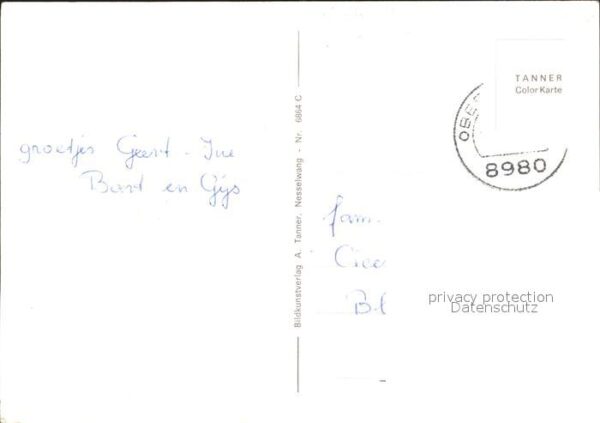 TANNER
Color Karte
OBE
8980
groetjes Geert - Ine
Bart en Gijs
Bildkunstverlag A. Tanner, Nesselwang - Nr. 6864 C
fam.
privacy protection
Datenschutz